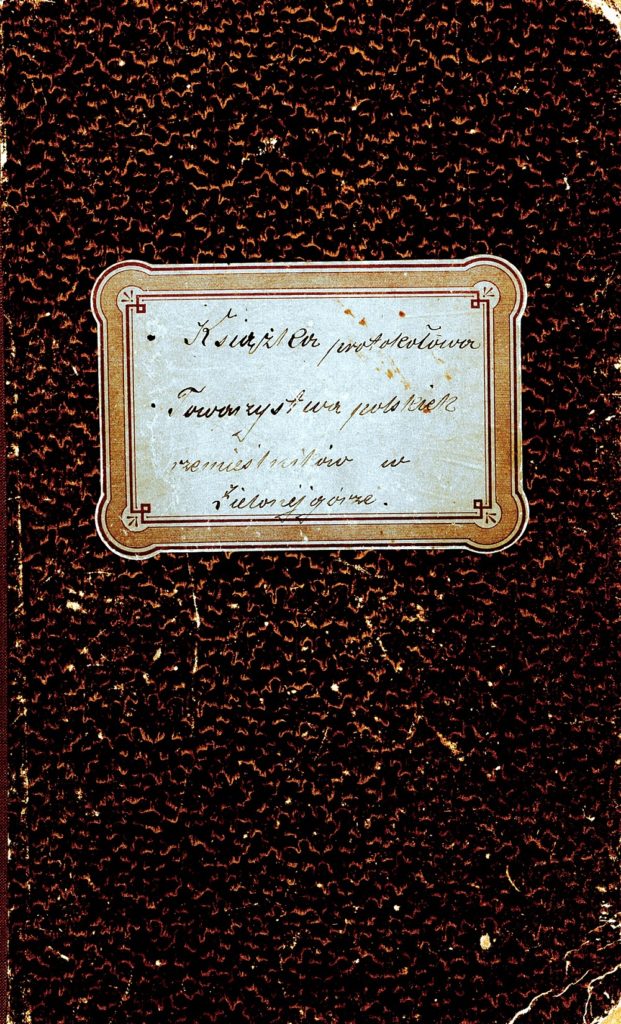 Książka protokołowa
Towarzystwa polskich
rzemieślników w
Zielonéj górze.